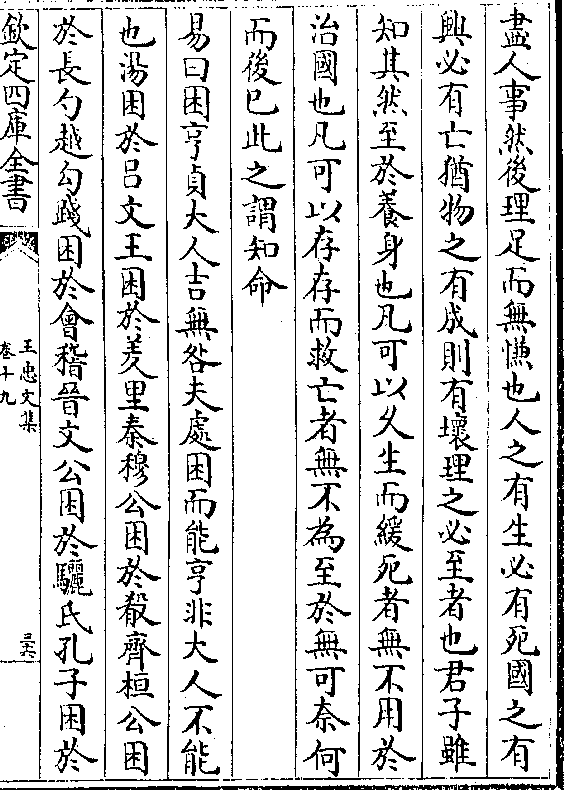 盡人事然後理足而無慊也人之有生必有死國之有
興必有亡猶物之有成則有壞理之必至者也君子雖
知其然至於養身也凡可以久生而緩死者無不用於
治國也凡可以存存而救亡者無不為至於無可奈何
而後已此之謂知命
易曰困亨貞大人吉無咎夫處困而能亨非大人不能
也湯困於呂文王困於羑里秦穆公困於殽齊桓公困
於長勺越勾踐困於會稽晉文公困於驪氏孔子困於
欽定四庫全書
王忠文集
卷十九
三六